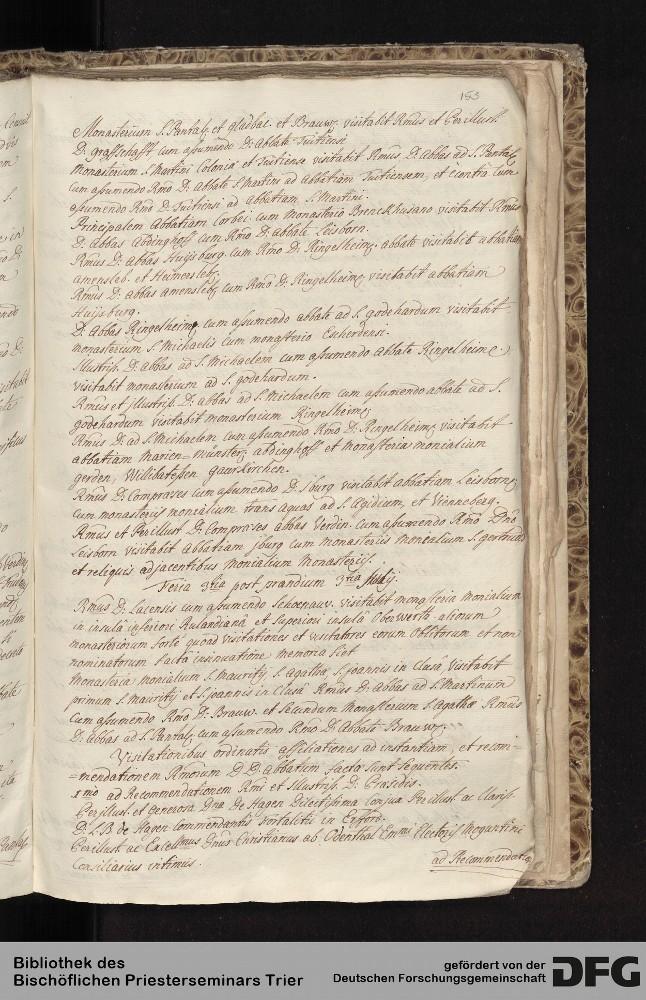 153
Monasterium S. Pantal. et gladbac. et Brauw. visitabit Rmus et Perillust.
D. graffschafft cum assumendo D. Abbate Tuitiensi
Monasterium S. Martini Coloniæ et Tuitiense visitabit Rmus D. Abbas ad S. Pantal.
cum assumendo Rmo D. Abbate S. Martini ad abbatiam Tuitiensem, et econtra cum
assumendo Rmo D. Tuitiensi ad abbatiam S. Martini.
Principalem Abbatiam Corbei. cum Monasterio Brenckhusano visitabit Rmus
D. Abbas Abdinghoff cum Rmo D. abbate Leisborn.
Rmus D. Abbas Huijsburg. cum Rmo D. Ringelheim. abbate visitabit abbatiam
amensleb. et Heimersleb.
Rmus D. abbas amensleb. cum Rmo D. Ringelheim. visitabit abbatiam
Huijsburg.
D. Abbas Ringelheim. cum assumendo abbate ad S. godehardum visitabit
monasterium S. Michaelis cum monasterio Escherdensi.
Illustriss. D. abbas ad S. Michaelem cum assumendo abbate Ringelheim.
visitabit monasterium ad S. godehardum.
Rmus et jllustriss. D. abbas ad S. Michaelem cum assumendo abbate ad S.
godehardum visitabit monasterium Ringelheim.
Rmus D. ad S. Michaelem cum assumendo Rmo D. Ringelheim. visitabit
abbatiam Marien-münster, abdinghoff et monasteria monialium
gerden, Willibatessen gaurkirchen.
Rmus D. Compræses cum assumendo D. Jburg visitabit abbatiam Leisborn.
cum monasteriis monialium trans aquas ad S. Ægidium, et Vienneberg.
Rmus et Perillust. D. Compræses abbas Verdin. cum assumendo Rmo Dno
Leisborn visitabit abbatiam jburg cum monasteriis monialium S. gertrudis
et reliquis adjacentibus monialium Monasterijs.
Feria 3tia post prandium 3tia Julij.
Rmus D. Lacensis cum assumendo Schoenauv. visitabit monasteria monialium
in insula inferiori Rulandiana et superiori insula Oberwerth. aliorum
monasteriorum forte quoad visitationes et visitatores eorum oblitorum et non
nominatorum facta insinuatione memoria fiet
Monasteria monialium S. Mauritij S. Agathæ, S. Joannis in Clusa, visitabit
primum S. Mauritij et S. Joannis in Clusa Rmus D. Abbas ad S. Martinum
cum assumendo Rmo D. Brauw. et secundum Monasterium S. Agathæ Rmus
D. Abbas ad S. Pantal. cum assumendo Rmo D. Abbate Brauw.
Visitationibus ordinatis affiliationes ad instantiam, et recom-
=mendationem Rmorum D.D. abbatum factæ sunt sequentes.
1mo ad Recommendationem Rmi et Illustriss. D. Præsidis.
Perillust. et Generosa Dna de Hagen Dilectissima Conjux Perillust. ac Clariss.
D. L. B. de Hagen Commendantis fortalitii in Erfort.
Perillust. ac Excellmus Dnus Christianus ab Odenthal Emmi Electoris Moguntini
Consiliarius intimus.
ad Recommendat.
Bibliothek des
Bischöflichen Priesterseminars Trier
gefördert von der
Deutschen Forschungsgemeinschaft
DFG